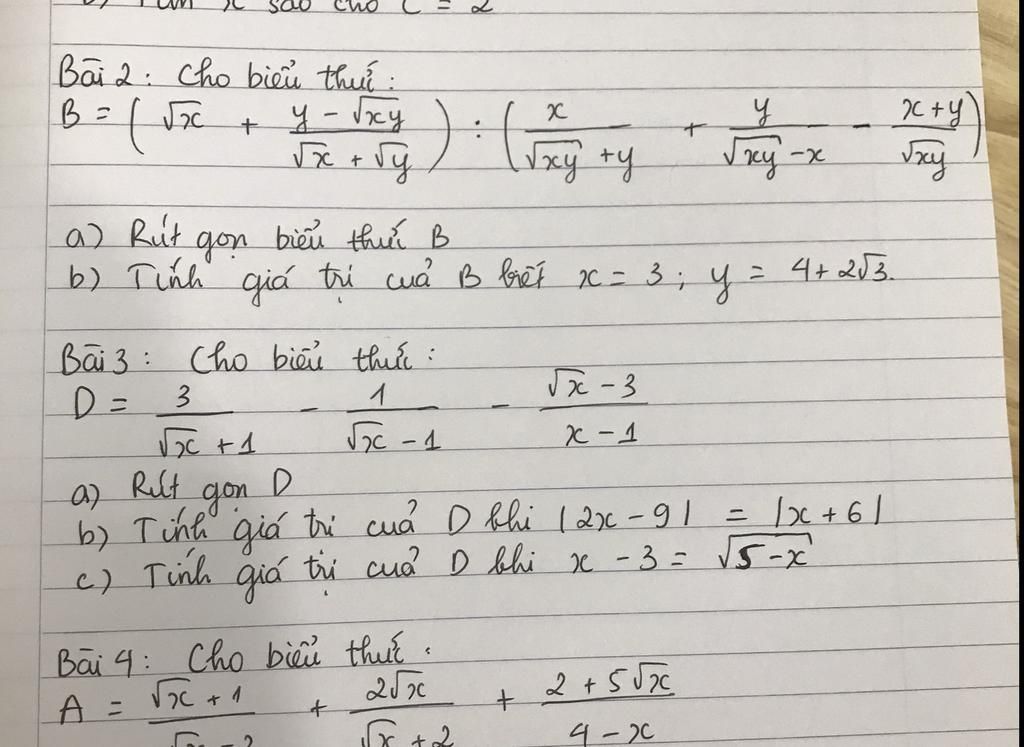 sao cho C = 2
Bài 2: Cho biểu thức:
B = ( √x + (y - √xy)/(√x + √y) ) : ( x/(√xy + y) + y/(√xy - x) - (x + y)/√xy )
a) Rút gọn biểu thức B
b) Tính giá trị của B biết x = 3; y = 4 + 2√3.
Bài 3: Cho biểu thức:
D = 3/(√x + 1) - 1/(√x - 1) - (√x - 3)/(x - 1)
a) Rút gọn D
b) Tính giá trị của D khi |2x - 9| = |x + 6|
c) Tính giá trị của D khi x - 3 = √(5 - x)
Bài 4: Cho biểu thức:
A = (√x + 1)/(√x - 2) + 2√x/(√x + 2) + (2 + 5√x)/(4 - x)